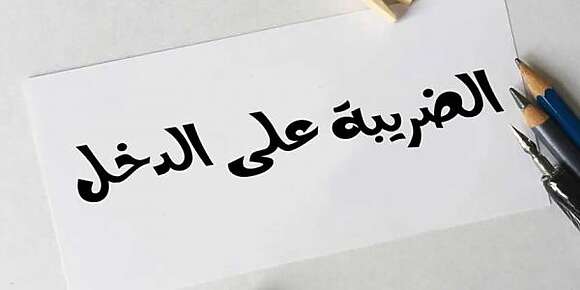 الضريبة على الدخل